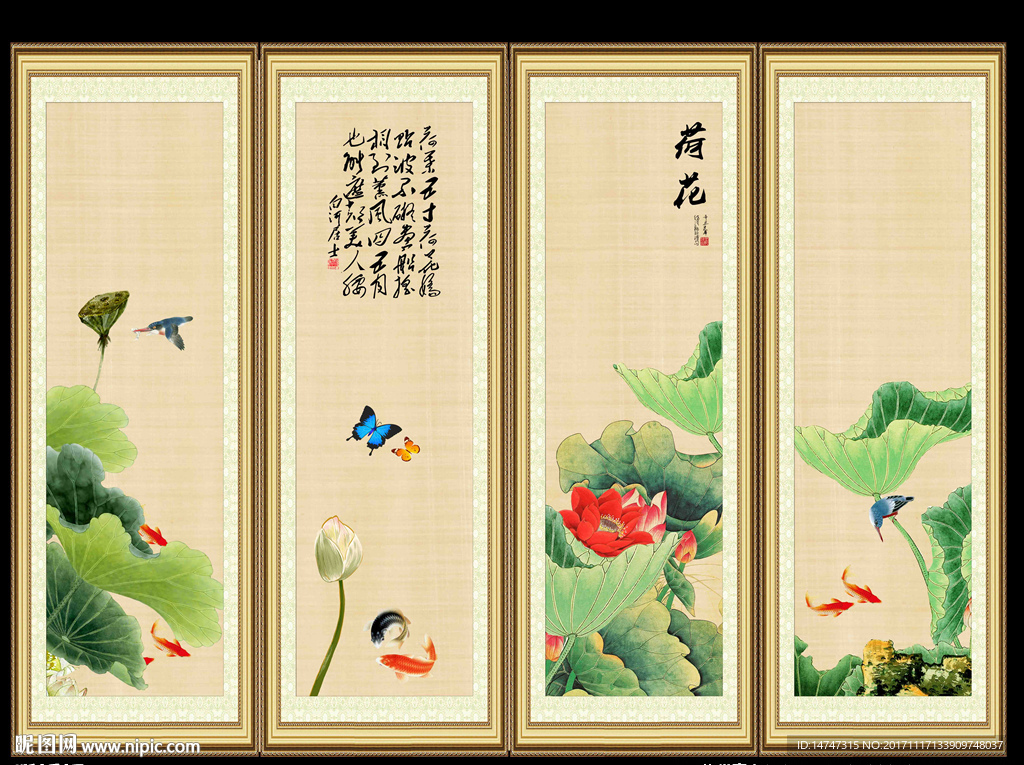 荷葉五寸荷花嬌
貼波不礙畫船搖
相到薰風四五月
也能遮却美人腰
白河居士
荷花
昵图网 www.nipic.com
ID:14747315 NO:20171117133909748037